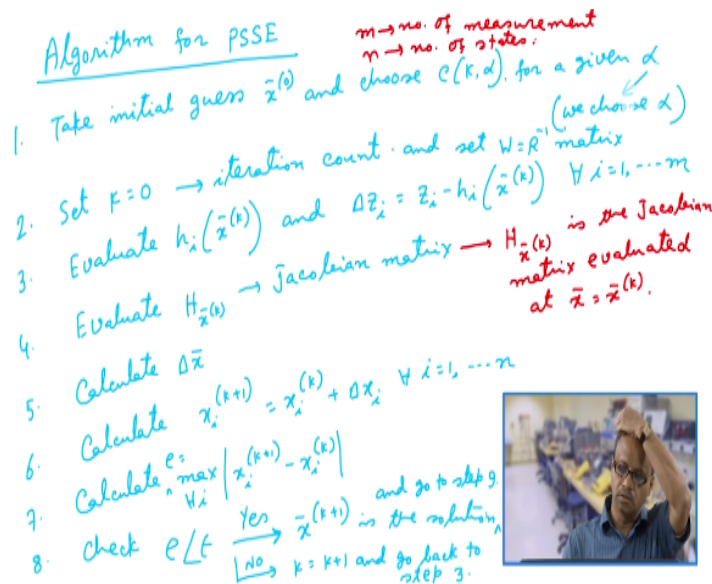 Algorithm for PSSE
m → no. of measurement
n → no. of states.
1. Take initial guess x̄^(0) and choose C(K,α), for a given α
(we choose α)
2. Set k=0 → iteration count. and set W=R^-1 matrix
3. Evaluate h_i(x̄^(k)) and Δz_i = z_i - h_i(x̄^(k)) ∀ i=1, ...m
4. Evaluate H_x̄(k) → Jacobian matrix → H_x̄(k) is the Jacobian
matrix evaluated
at x̄ = x̄^(k).
5. Calculate Δx̄
6. Calculate x_i^(k+1) = x_i^(k) + Δx_i ∀ i=1, ...n
7. Calculate e= max_∀i |x_i^(k+1) - x_i^(k)|
8. Check e<ϵ Yes → x̄^(k+1) is the solution, and go to step 9.
No → k = k+1 and go back to
step 3.